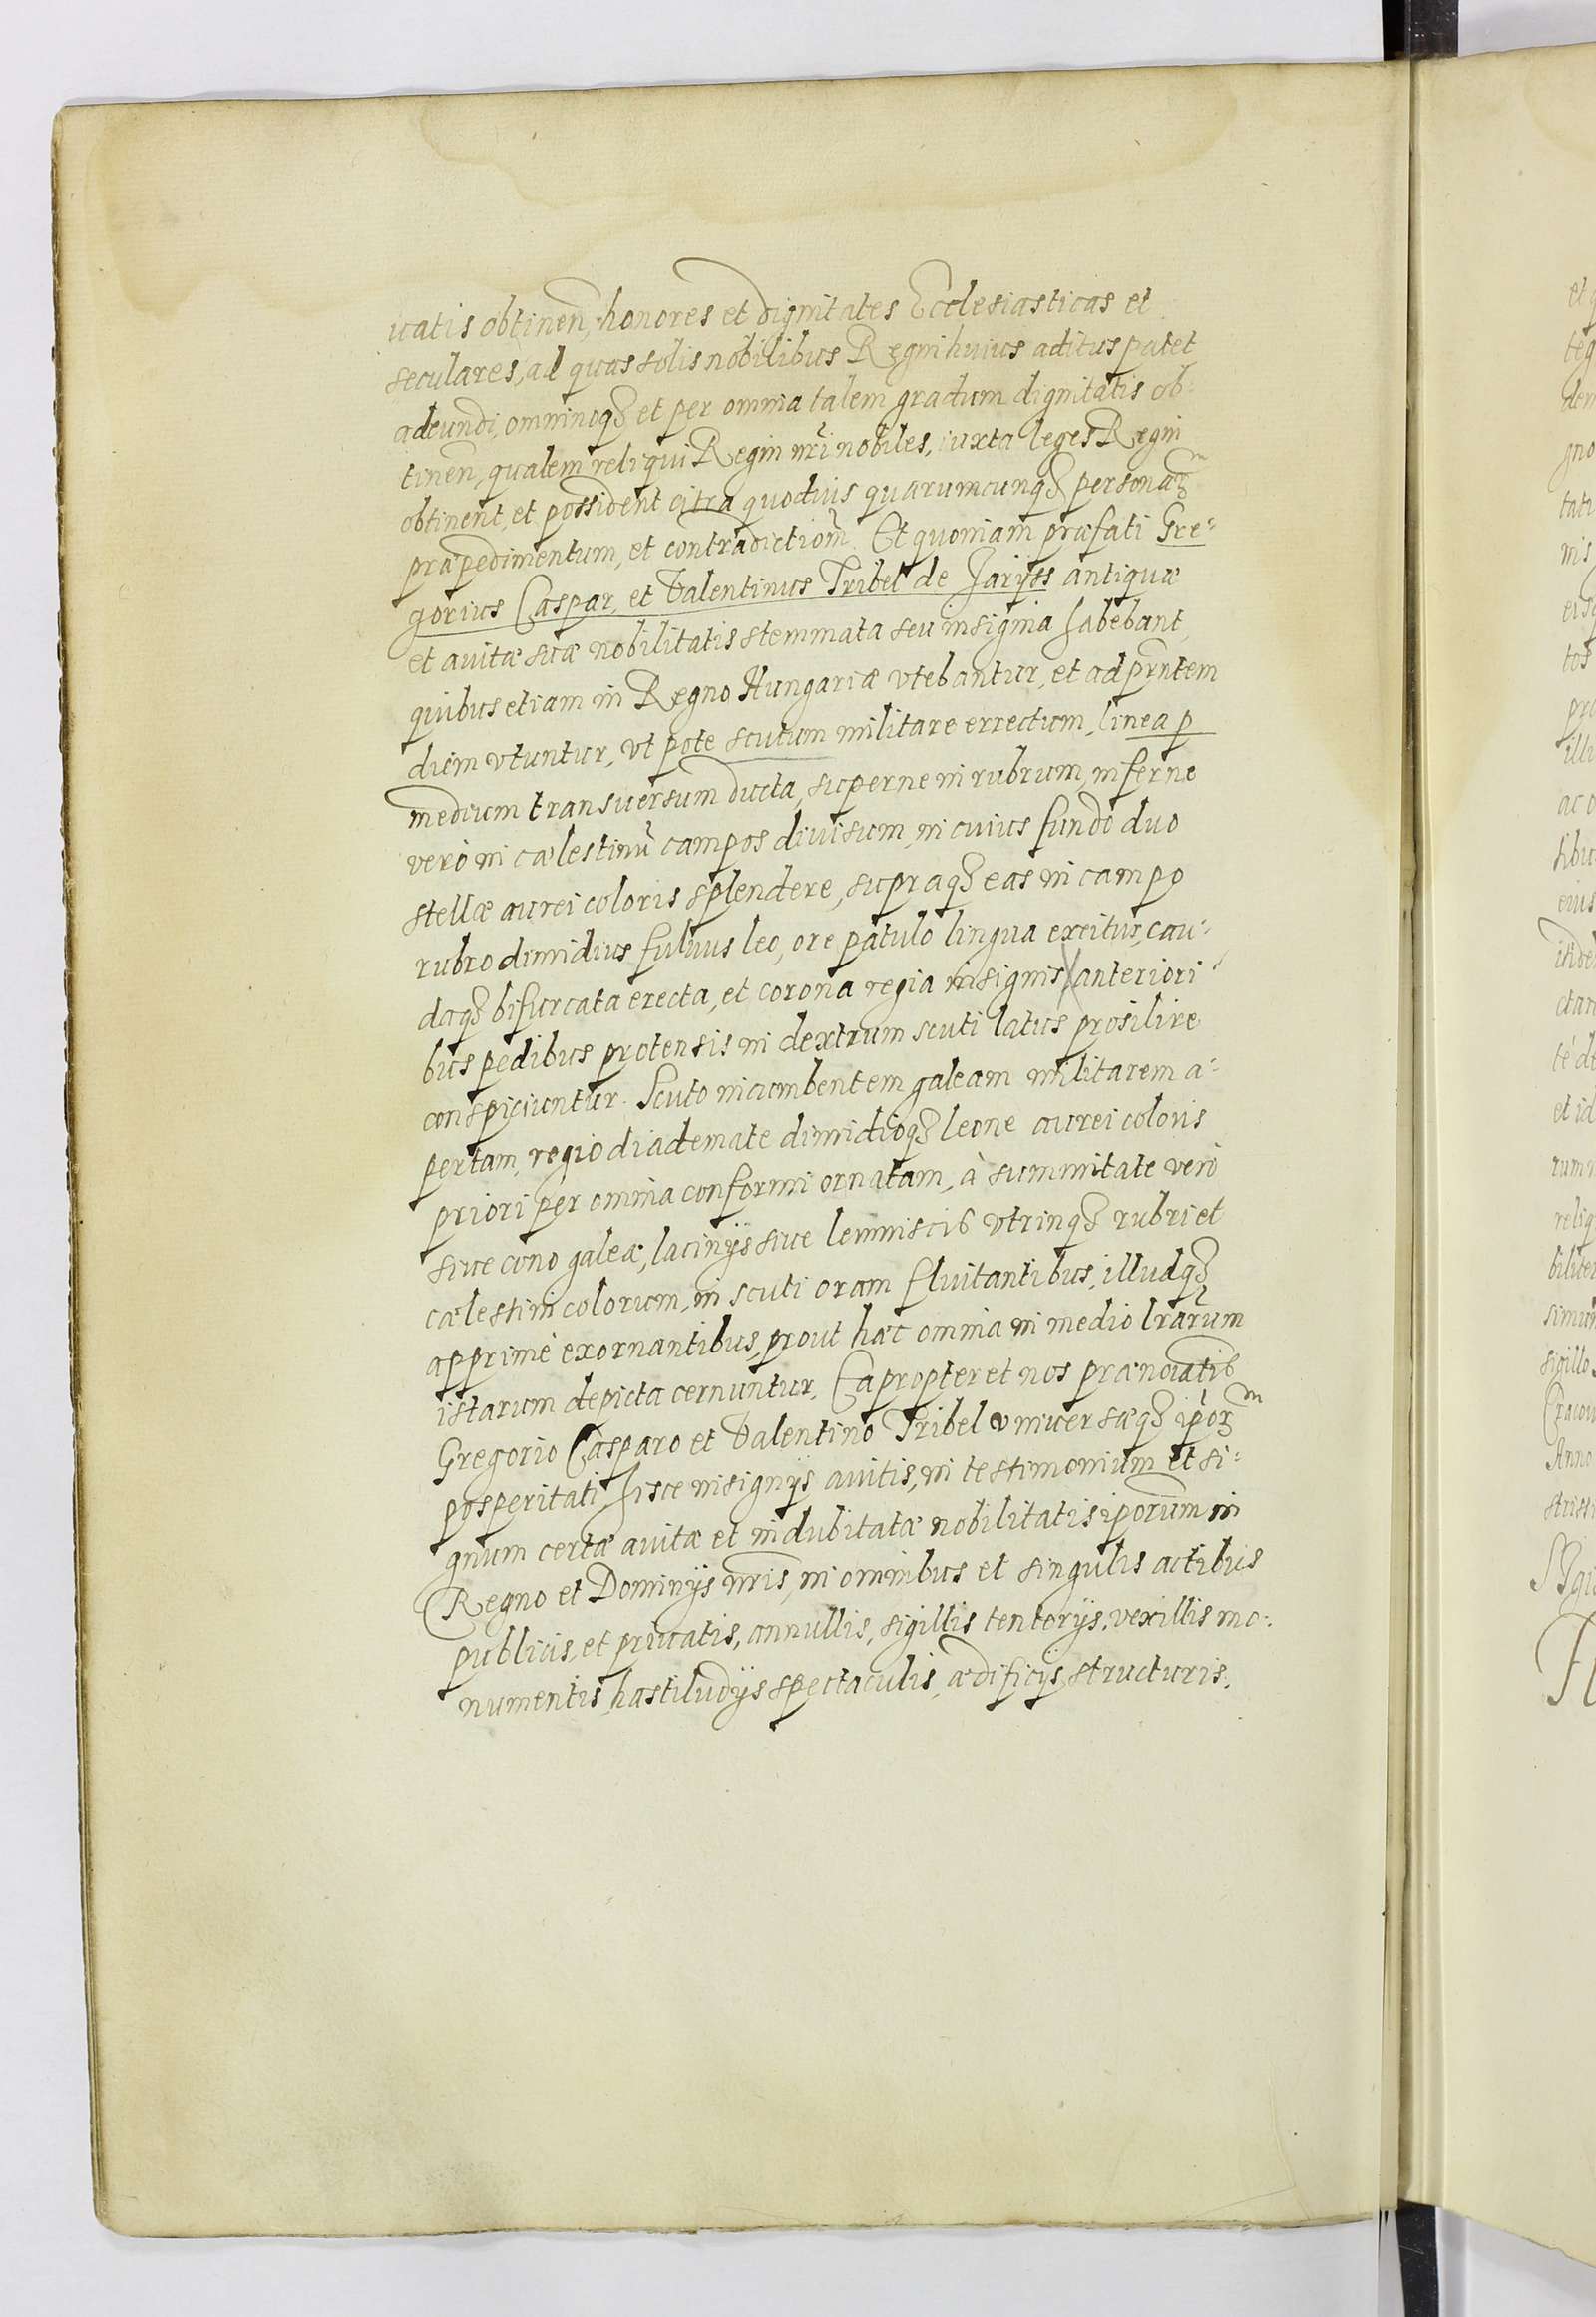 uatis obtinen̄, honores et dignitates Ecclesiasticas et
seculares, ad quas solis nobilibus Regni huius aditus patet
adeundi, omninoqȝ et per omnia talem gradum dignitatis ob-
tinen̄, qualem reliqui Regni nr̄i nobiles, iuxta leges Regni
obtinent, et possident citra quoduis quarumcunqȝ personaꝝ
præpedimentum, et contradictiom̄. Et quoniam præfati Gre-
gorius Caspar, et Valentinus Tribel de Jarÿss antiquæ
et auitæ suæ nobilitatis stemmata seu insignia habebant,
quibus etiam in Regno Hungariæ vtebantur, et ad pr̄ntem
diem vtuntur, vt pote scutum militare errectum, linea p
medium transuersum ducta, superne in rubrum, inferne
verò in cælestinū campos diuisum, in cuius fundo duo
stellæ aurei coloris splendere, supraqȝ eas in campo
rubro dimidius fuluus leo, ore patulo lingua exeitur, cau-
daqȝ bifurcata erecta, et corona regia insignis, anteriori-
bus pedibus protensis in dextrum scuti latus prosilire
conspiciuntur. Scuto incumbentem galeam militarem a-
pertam, regio diademate dimidioqȝ leone aurei coloris
priori per omnia conformi ornatam, à summitate verò
siue cono galeæ, lacinÿs siue lemniscis vtrinqȝ rubri et
cælestini colorum, in scuti oram fluitantibus, illudqȝ
apprimè exornantibus, prout hæc omnia in medio lr̄arum
istarum depicta cernuntur. Eapropter et nos prænoiatis
Gregorio Casparo et Valentino Tribel vniuersæqȝ ipōꝝ
posperitati hisce insignÿs auitis, in testimonium et si-
gnum certæ auitæ et indubitatæ nobilitatis ipōrum in
Regno et Dominÿs nr̄is, in omnibus et singulis actibus
publicis, et priuatis, annullis, sigillis tentorÿs, vexillis mo-
numentis, hastiludÿs spectaculis, ædificÿs structuris,